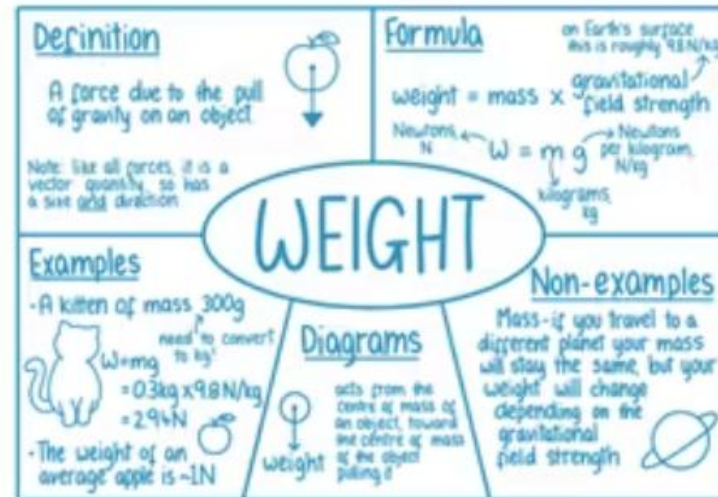 Definition
A force due to the pull
of gravity on an object
Note: like all forces, it is a
vector quantity, so has
a size and direction
Formula
on Earth's surface
this is roughly 9.8N/kg
weight = mass x gravitational
field strength
Newtons,
N
W = m g
Newtons
per kilogram,
N/kg
kilograms,
kg
WEIGHT
Examples
-A kitten of mass 300g
need to convert
to kg
W=mg
= 0.3kg x 9.8N/kg
= 2.94N
-The weight of an
average apple is ~1N
Diagrams
weight
acts from the
centre of mass of
an object, toward
the centre of mass
of the object
pulling it
Non-examples
Mass-if you travel to a
different planet your mass
will stay the same, but your
weight will change
depending on the
gravitational
field strength